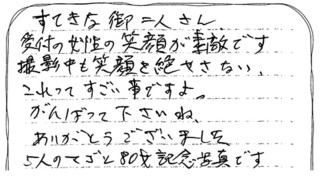 すてきな御二人さん
受付の女性の笑顔が素敵です
撮影中も笑顔を絶やさない、
これってすごい事ですよ。
がんばって下さいね、
ありがとうございました
5人のてごと80才記念写真です